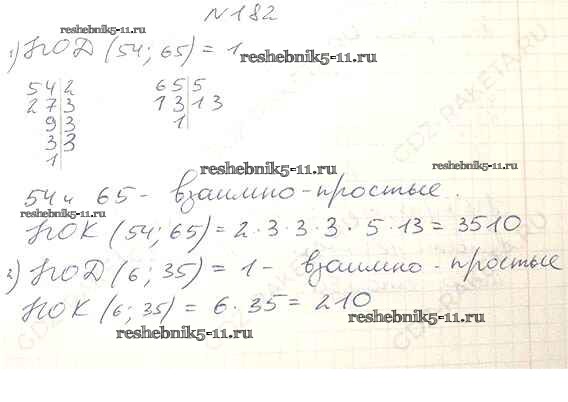 №182
reshebnik5-11.ru
1) НОД (54; 65) = 1
reshebnik5-11.ru
54|2 65|5
27|3 13|13
9|3 1|
3|3
1|
reshebnik5-11.ru
reshebnik5-11.ru
reshebnik5-11.ru
54 и 65 - взаимно-простые.
reshebnik5-11.ru
НОК (54; 65) = 2·3·3·3·5·13 = 3510
2) НОД (6; 35) = 1 - взаимно-простые
НОК (6; 35) = 6·35 = 210
reshebnik5-11.ru
reshebnik5-11.ru
GDZ-RAKETA.RU